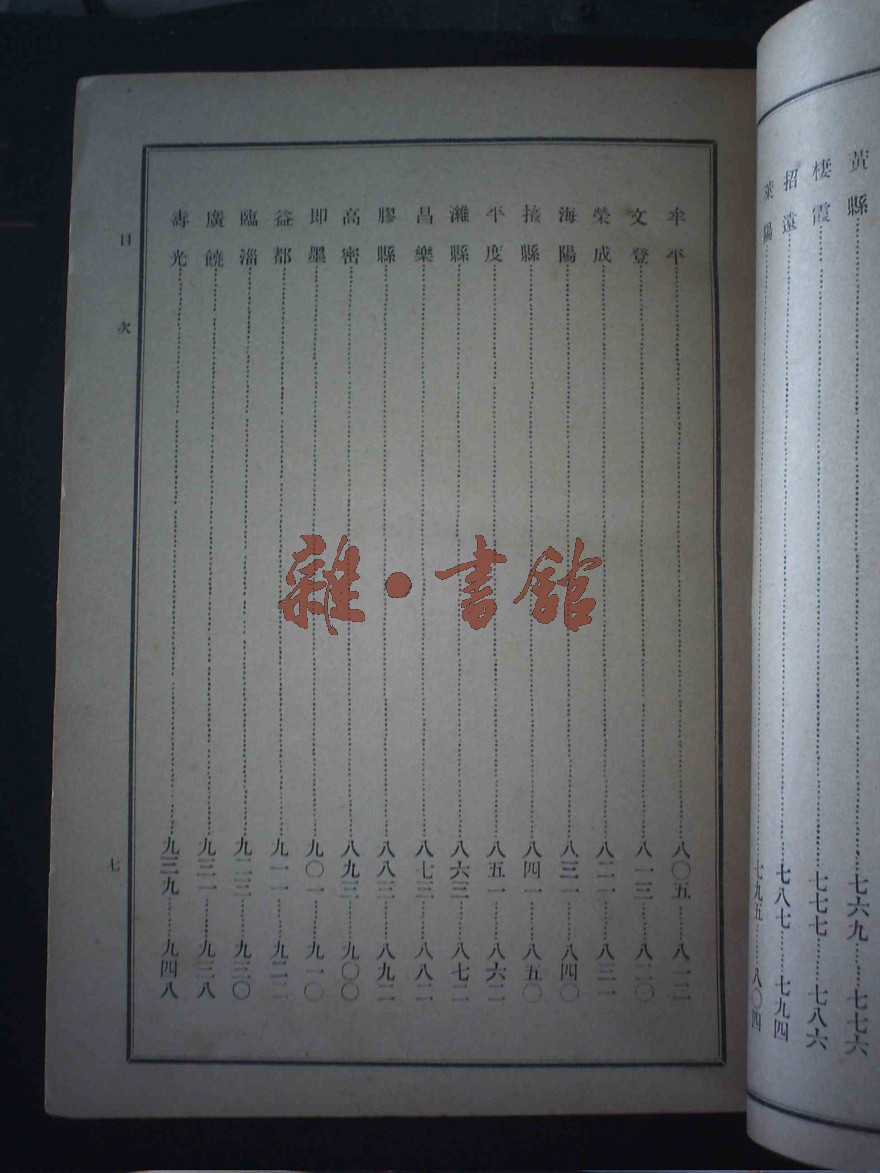 黃縣……七六九……七七六
棲霞……七七七……七八六
招遠……七八七……七九四
萊陽……七九五……八〇四
牟平……八〇五……八一二
文登……八一三……八二〇
榮成……八二一……八三一
海陽……八三一……八四〇
掖縣……八四一……八五〇
平度……八五一……八六二
濰縣……八六三……八七二
昌樂……八七三……八八二
膠縣……八八三……八九二
高密……八九三……九〇〇
即墨……九〇一……九一〇
益都……九一一……九二二
臨淄……九二三……九三〇
廣饒……九三一……九三八
壽光……九三九……九四八
目次
七
雜·書館